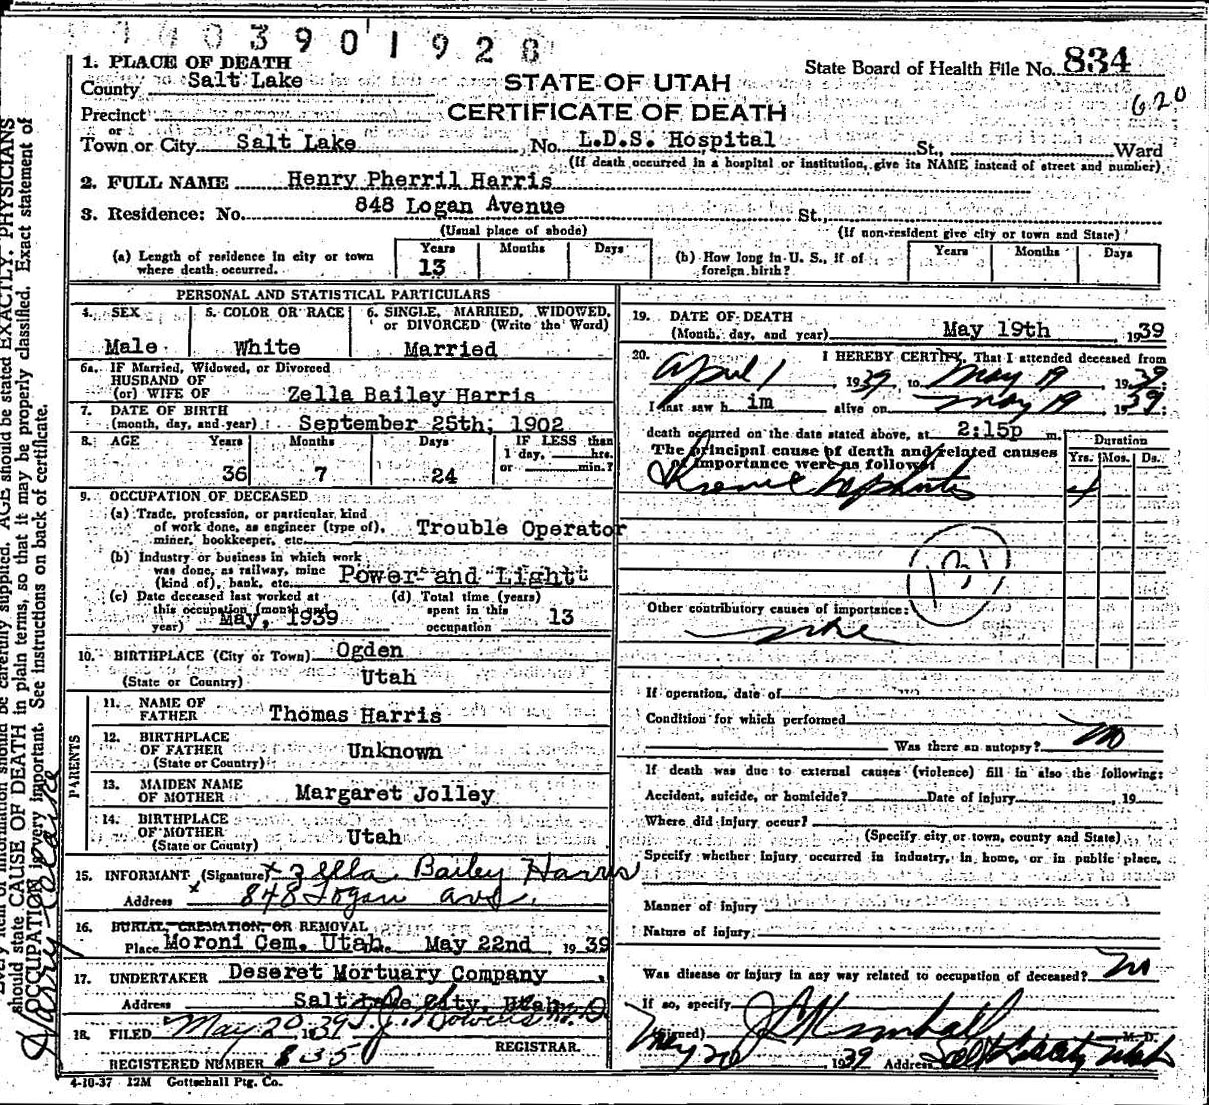 1903901928
834
620
1. PLACE OF DEATH
County Salt Lake
STATE OF UTAH
State Board of Health File No. 834
Precinct
CERTIFICATE OF DEATH
or
Town or City Salt Lake, No. L.D.S. Hospital St., Ward
(If death occurred in a hospital or institution, give its NAME instead of street and number)
2. FULL NAME Henry Pherril Harris
3. Residence: No. 848 Logan Avenue St.,
(Usual place of abode) (If non-resident give city or town and State)
(a) Length of residence in city or town where death occurred. Years 13 Months Days
(b) How long in U. S., if of foreign birth? Years Months Days
PERSONAL AND STATISTICAL PARTICULARS
4. SEX Male
5. COLOR OR RACE White
6. SINGLE, MARRIED, WIDOWED, or DIVORCED (Write the Word) Married
6a. IF Married, Widowed, or Divorced
HUSBAND OF
(or) WIFE OF Zella Bailey Harris
7. DATE OF BIRTH
(month, day, and year) September 25th, 1902
8. AGE Years 36 Months 7 Days 24 IF LESS than 1 day, hrs. or min.?
9. OCCUPATION OF DECEASED
(a) Trade, profession, or particular kind
of work done, as engineer (type of),
miner, bookkeeper, etc. Trouble Operator
(b) Industry or business in which work
was done, as railway, mine
(kind of), bank, etc. Power and Light
(c) Date deceased last worked at
this occupation (month and
year) May, 1939
(d) Total time (years)
spent in this
occupation 13
10. BIRTHPLACE (City or Town) Ogden
(State or Country) Utah
PARENTS
11. NAME OF
FATHER Thomas Harris
12. BIRTHPLACE
OF FATHER Unknown
(State or Country)
13. MAIDEN NAME
OF MOTHER Margaret Jolley
14. BIRTHPLACE
OF MOTHER Utah
(State or County)
15. INFORMANT (Signature) x Zella Bailey Harris
Address x 848 Logan Ave.
16. BURIAL, CREMATION, OR REMOVAL
Place Moroni Cem. Utah. May 22nd, 1939
17. UNDERTAKER Deseret Mortuary Company
Address Salt Lake City, Utah
18. FILED May 20 1939 M.D.
REGISTRAR.
REGISTERED NUMBER 835
4-10-37 12M Gottschall Ptg. Co.
19. DATE OF DEATH
(Month, day, and year) May 19th 1939
20. I HEREBY CERTIFY, That I attended deceased from
April 1 1939 to May 19, 1939;
I last saw h im alive on May 19 1939;
death occurred on the date stated above, at 2:15p m.
The principal cause of death and related causes
of importance were as follows:
Duration
Yrs. Mos. Ds.
Chronic Nephritis 4
Other contributory causes of importance:
none
If operation, date of
Condition for which performed
Was there an autopsy? no
If death was due to external causes (violence) fill in also the following:
Accident, suicide, or homicide? Date of injury , 19
Where did injury occur?
(Specify city or town, county and State)
Specify whether injury occurred in industry, in home, or in public place,
Manner of injury
Nature of injury
Was disease or injury in any way related to occupation of deceased? no
If so, specify
(Signed) J L Kimball M. D.
May 20, 1939 Address Salt Lake City Utah
should state CAUSE OF DEATH in plain terms, so that it may be properly classified. Exact statement of
OCCUPATION is very important. See instructions on back of certificate.